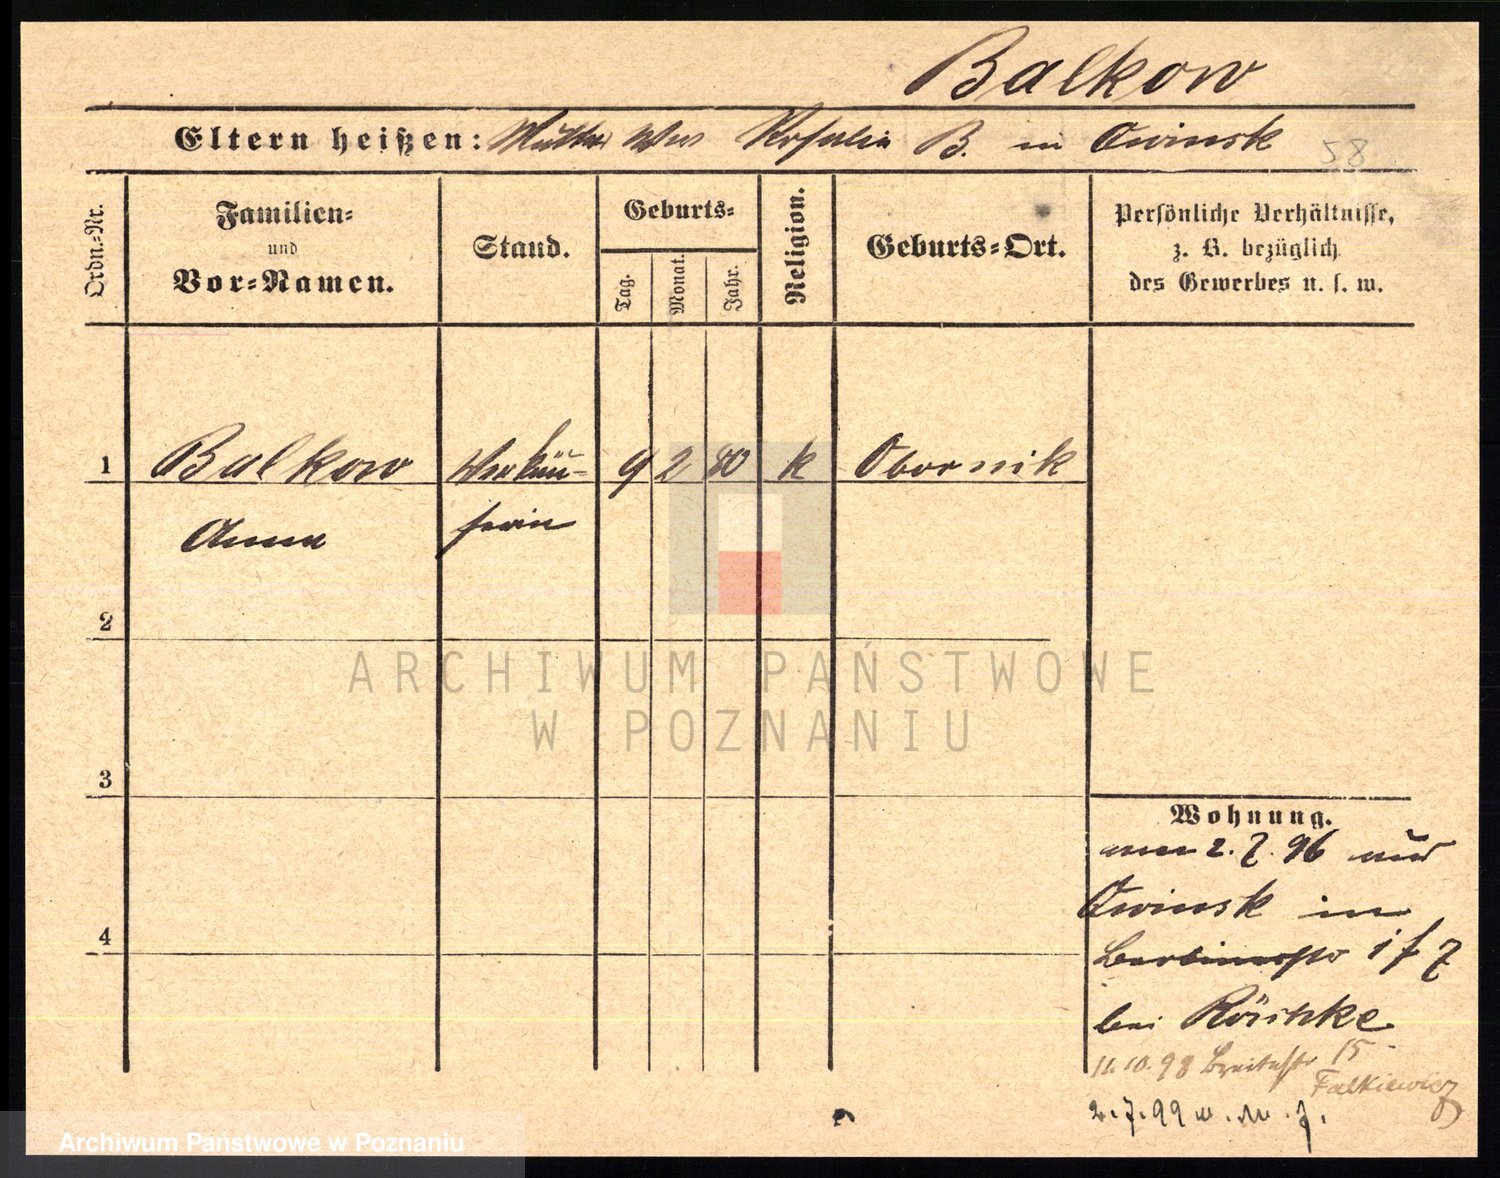 Balkow
Eltern heißen: Mutter Wwe Rosalia B. in Owinsk 58
Ordn.-Nr.
Familien-
und
Vor-Namen.
Stand.
Geburts-
Tag.
Monat.
Jahr.
Religion.
Geburts-Ort.
Persönliche Verhältnisse,
z. B. bezüglich
des Gewerbes u. s. w.
1 Balkow Verkäu- 9 2 80 k Obornik
Anna ferin
2
3
4
Wohnung.
2.7.96 aus
Owinsk in
Berlinerstr 1
bei Röschke
11.10.98 Breitestr 15
Falkiewicz
2.7.99
ARCHIWUM PAŃSTWOWE
W POZNANIU
Archiwum Państwowe w Poznaniu